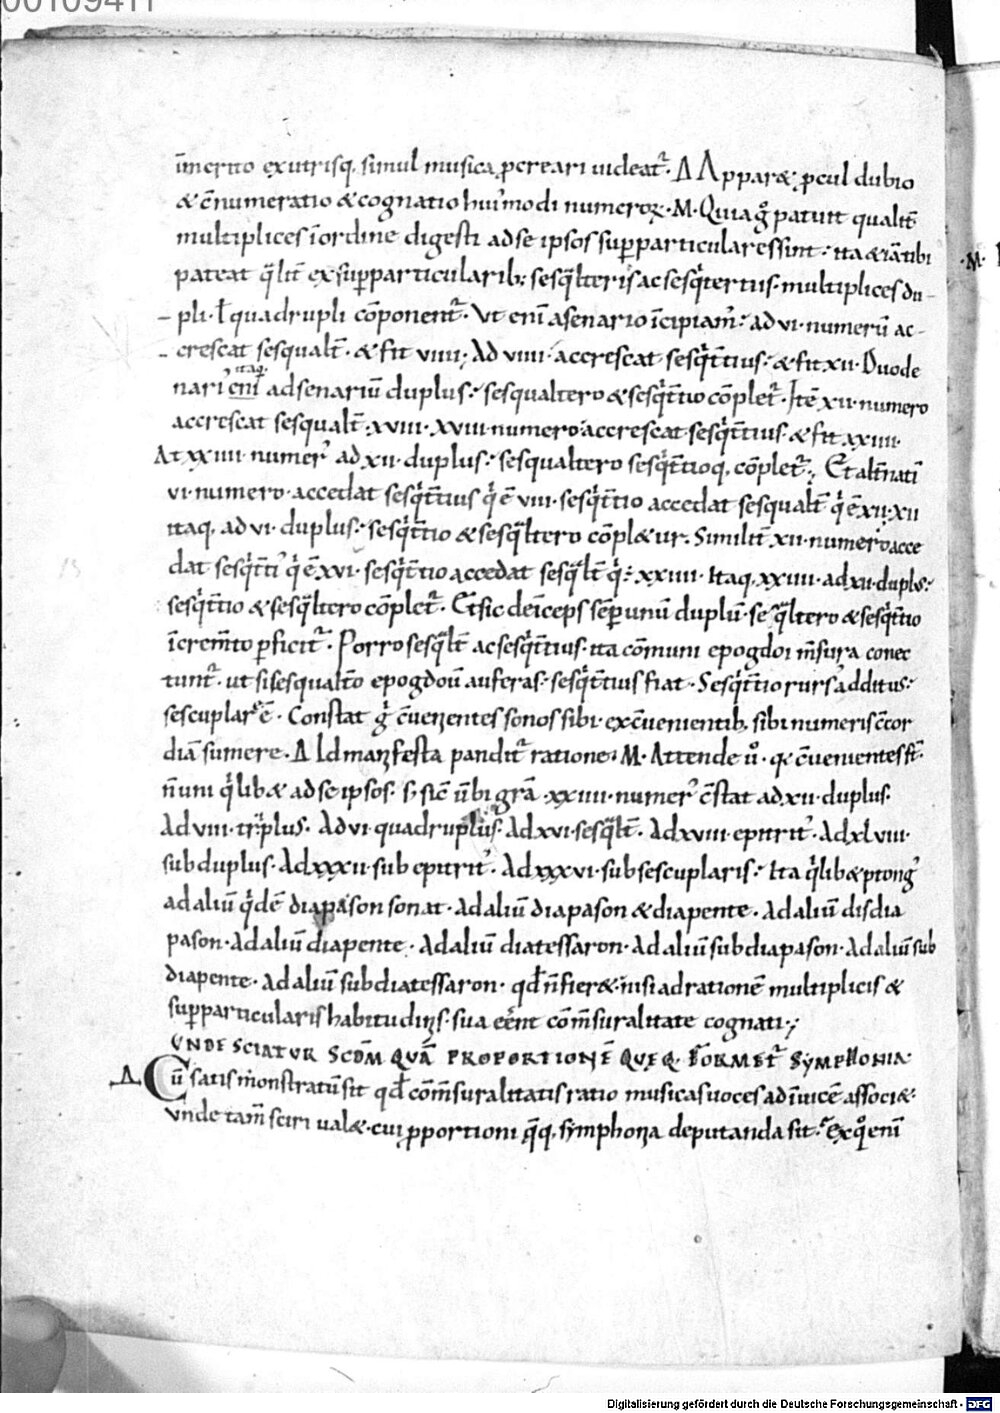 00109411
īmerito exutrisq, simul musica ꝓcreari uideat᷑. Δ Apparæ ꝓcul dubio
& c̄numeratio & cognatio hui᾽modi numeroꝝ · M · Quia g̊ patuit qualit̄
multiplices īordine digesti adse ipsos suꝑparticulares sint · ita & iā tibi
pateat q̄lit̄ exsuꝑparticularib; sesq̄lteris ac sesq̇tertiis · multiplices du-
pli · ł quadrupli cōponent᷑ · Ut enī asenario īcipiam᾽ · ad vi · numerū ac-
crescat sesqualt̄ · & fit viiii; Ad viiii · accrescat sesq̇t̄tius · & fit xii · Duode
nari᾽ enī itaq, ad senariū duplus · sesqualtero & sesq̇t̄tio cōplet᷑ · Itē xii · numero
accrescat sesqualt̄ · xviii · xviii · numero accrescat sesq̇t̄tius · & fit xxiiii ·
At xxiiii · numer᾽ ad xii · duplus · sesqualtero sesq̇t̄tioq, cōplet᷑; Et alt̄natī
vi · numero · accedat sesq̇t̄tius q̇ ē viii · sesq̇t̄tio accedat sesqualt̄ q̇ ē xii · xii
itaq, ad vi · duplus · sesq̇t̄tio & sesq̄ltero cōplæur · Similit̄ xii · numero acce
dat sesq̇t̄ti᾽ q̇ ē xvi · sesq̇t̄tio accedat sesq̄lt̄ q̇ ÷ xxiiii · Itaq, xxiiii · ad xii · dupl᾽s ·
sesq̇t̄tio & sesq̄ltero cōplet᷑ · Et sic deīceps sēꝑ unū duplū · sesq̄ltero & sesq̇t̄tio
īcrem̄to ꝑficit᷑ · Porro sesq̄lt̄ ac sesq̇t̄tius · ita cōmuni epogdoi m̄sura conec
tunt᷑ · ut si sesqualt̄o epogdoū auferas · sesq̇t̄tius fiat · Sesq̇t̄tio rurs᾽ additus ·
sescuplar᾽ ē · Constat g̊ c̄uenientes sonos sibi · exc̄uenientib; sibi numeris c̄cor
diā sumere · Δ Id manifesta pandit᷑ ratione · M · Attende ů · qæ c̄uenientes st̄ ·
n̄ uni q̇libæ ad se ipsos · s; sic̄ ūbi grā · xxiiii · numer᾽ c̄stat ad xii · duplus ·
Ad viii · triplus · Ad vi quadruplus · Ad xvi · sesq̄lt̄ · Ad xviii epitrit᾽ · Ad xlviii ·
subduplus · Ad xxxii · sub epitrit᾽ · Ad xxxvi · sub sescuplaris · Ita q̇libæ ptong᾽
ad aliū q̇dē diapason sonat · ad aliū diapason & diapente · ad aliū disdia
pason · ad aliū diapente · ad aliū diatessaron · ad aliū subdiapason · ad aliū sub
diapente · ad aliū subdiatessaron · qđ n̄ fieræ · nisi ad rationē multiplicis &
suꝑparticularis habitudinis · sua eēnt cōm̄suralitate cognati;
UNDE SCIATUR SCDM QUĀ PROPORTIONĒ QUEQ, FORMET᷑ SYMPHONIA
Δ Cū satis monstratū sit qđ cōm̄suralitatis ratio musicas uoces ad īuicē associæ ·
unde tam̄ sciri ualæ · cui ꝓportioni q̄q, symphonia deputanda sit · Ex q̊ enī
· M ·
Digitalisierung gefördert durch die Deutsche Forschungsgemeinschaft - DFG